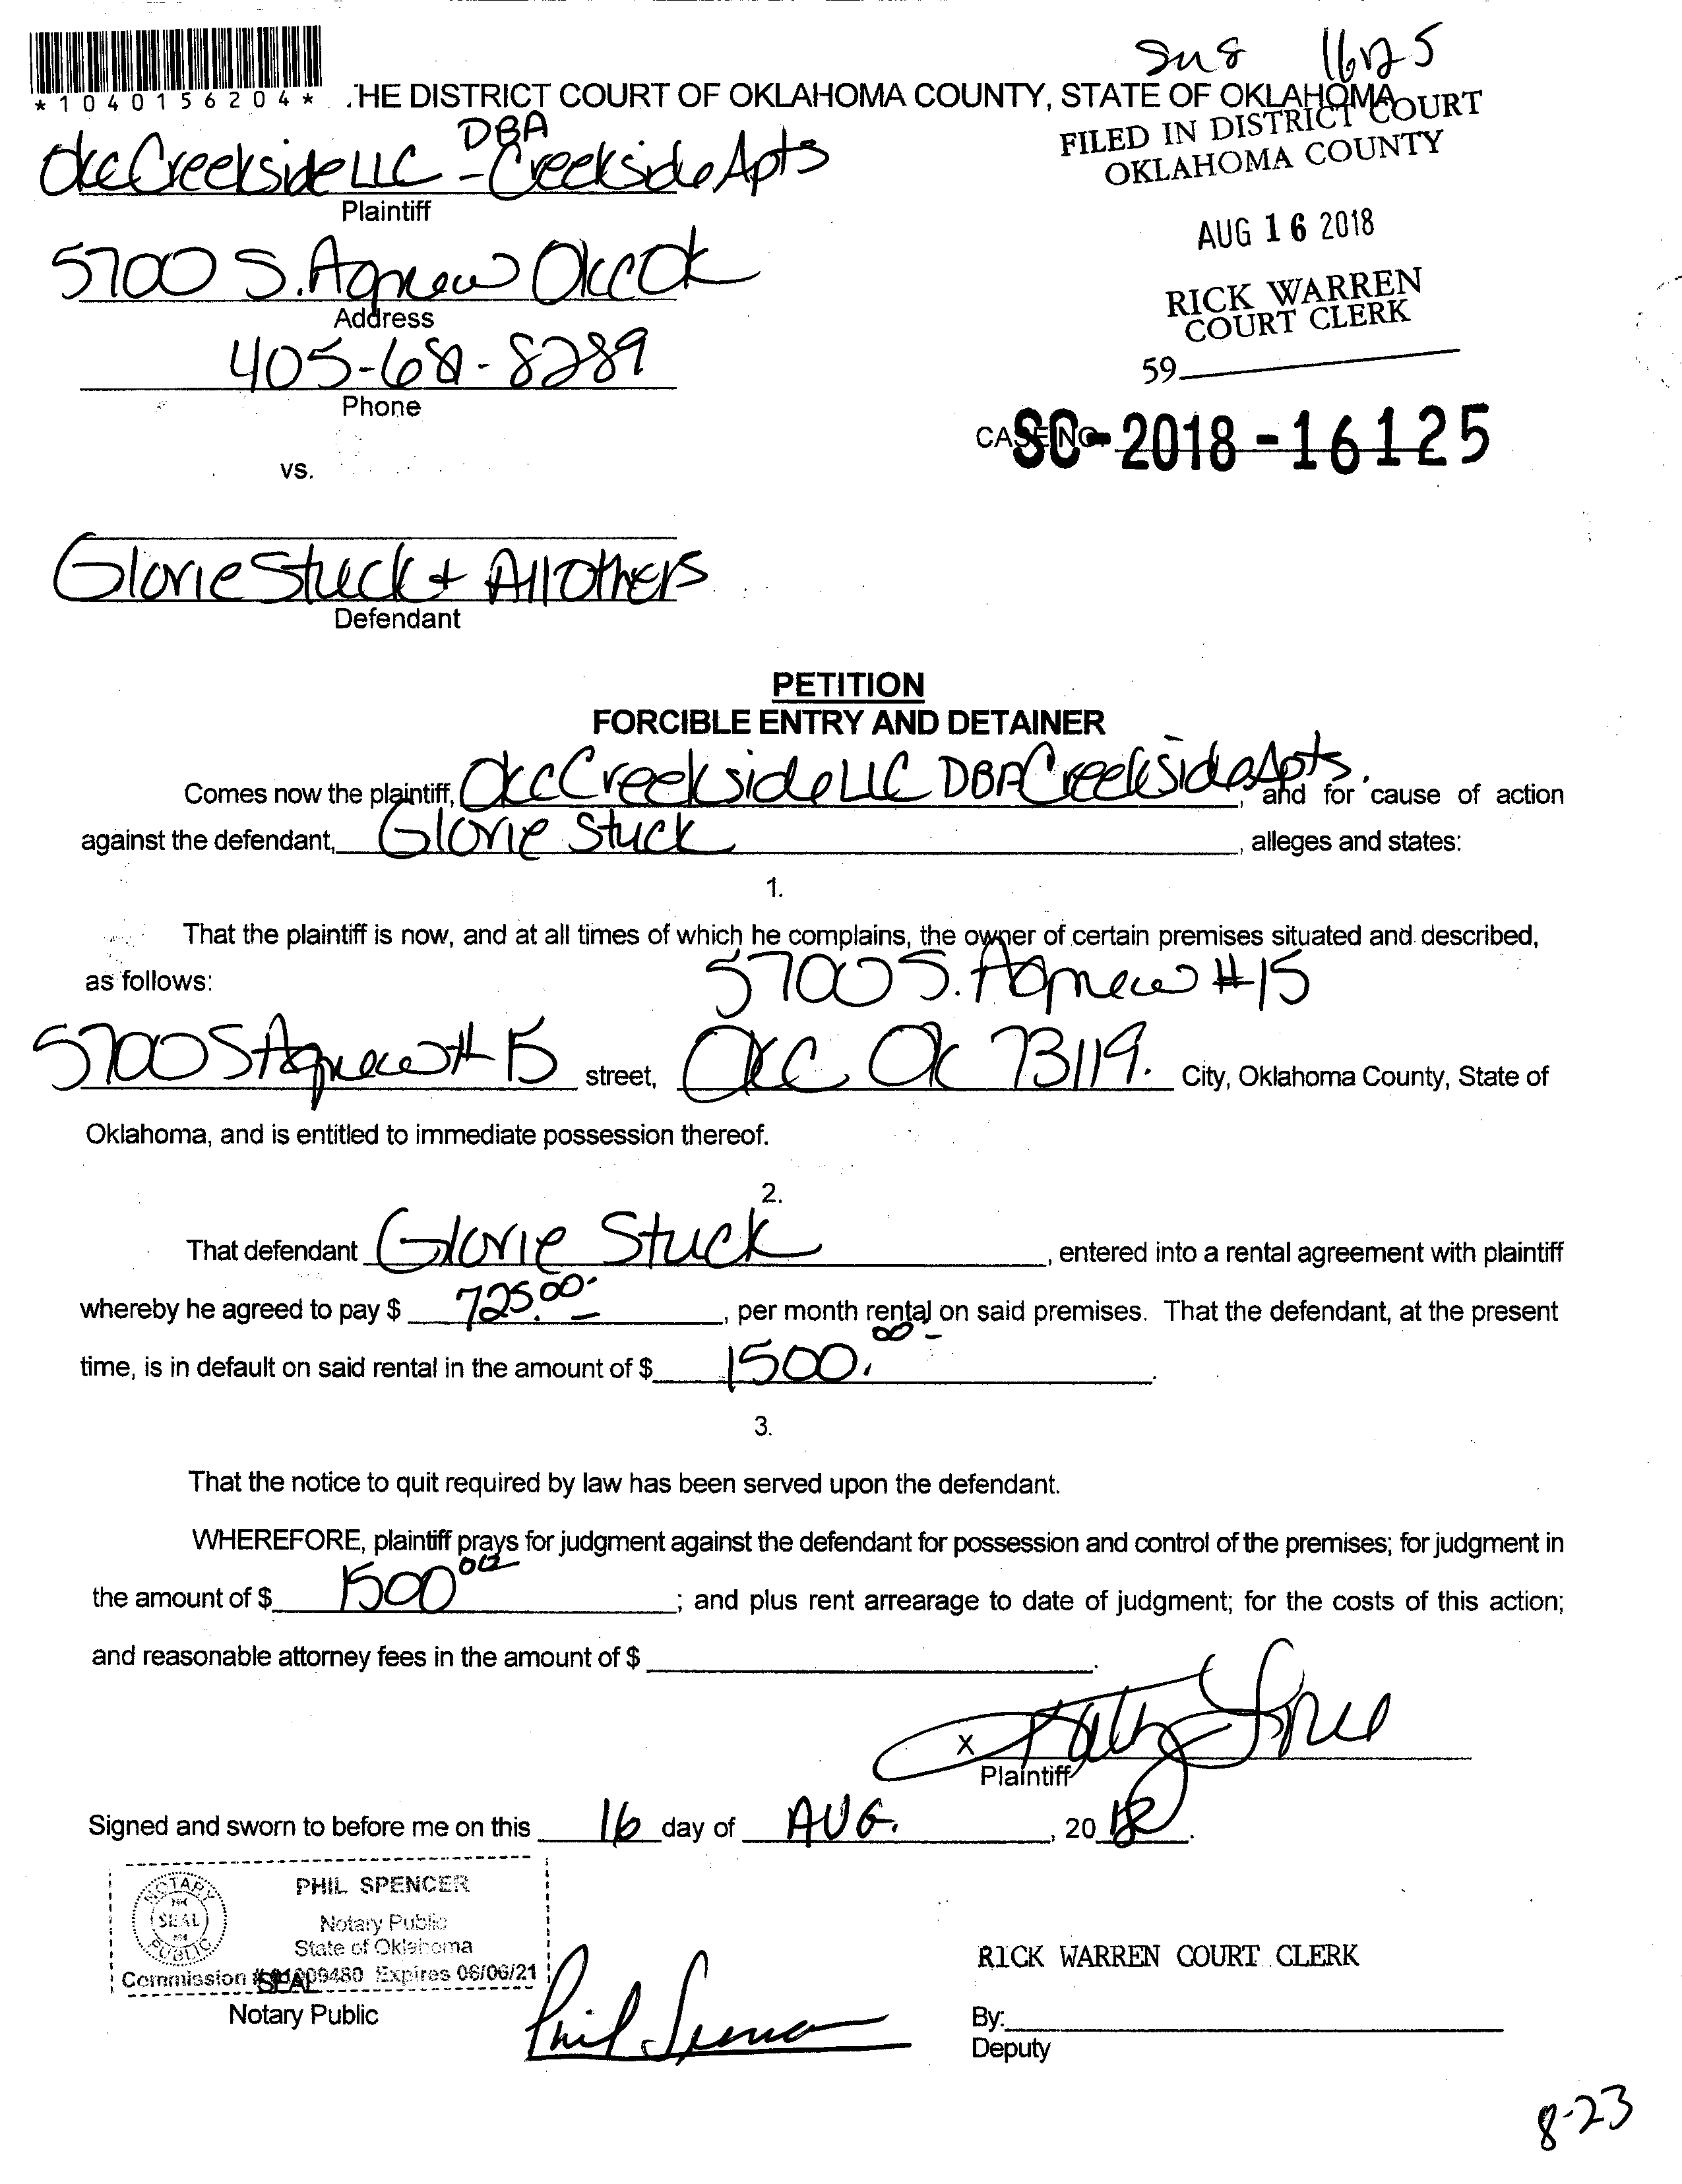 16125
*1040156204*
THE DISTRICT COURT OF OKLAHOMA COUNTY, STATE OF OKLAHOMA
FILED IN DISTRICT COURT
OKLAHOMA COUNTY
DBA
Okc Creekside LLC - Creekside Apts
Plaintiff
AUG 16 2018
5700 S. Agnew Okc Ok
Address
RICK WARREN
COURT CLERK
405-681-8289
Phone
59
CASE NO. SC-2018-16125
vs.
Glorie Stuck + All Others
Defendant
PETITION
FORCIBLE ENTRY AND DETAINER
Comes now the plaintiff, Okc Creekside LLC DBA Creekside Apts., and for cause of action
against the defendant, Glorie Stuck, alleges and states:
1.
That the plaintiff is now, and at all times of which he complains, the owner of certain premises situated and described,
as follows: 5700 S. Agnew #15
5700 S Agnew # 15 street, Okc Ok 73119. City, Oklahoma County, State of
Oklahoma, and is entitled to immediate possession thereof.
2.
That defendant Glorie Stuck, entered into a rental agreement with plaintiff
whereby he agreed to pay $ 725.00, per month rental on said premises. That the defendant, at the present
time, is in default on said rental in the amount of $ 1500.00.
3.
That the notice to quit required by law has been served upon the defendant.
WHEREFORE, plaintiff prays for judgment against the defendant for possession and control of the premises; for judgment in
the amount of $ 1500 00; and plus rent arrearage to date of judgment; for the costs of this action;
and reasonable attorney fees in the amount of $ .
X
Plaintiff
Signed and sworn to before me on this 16 day of AUG., 2018.
NOTARY PUBLIC
SEAL
PHIL SPENCER
Notary Public
State of Oklahoma
Commission #01009480 Expires 06/06/21
SEAL
Notary Public
Phil Spencer
RICK WARREN COURT CLERK
By:
Deputy
8-23